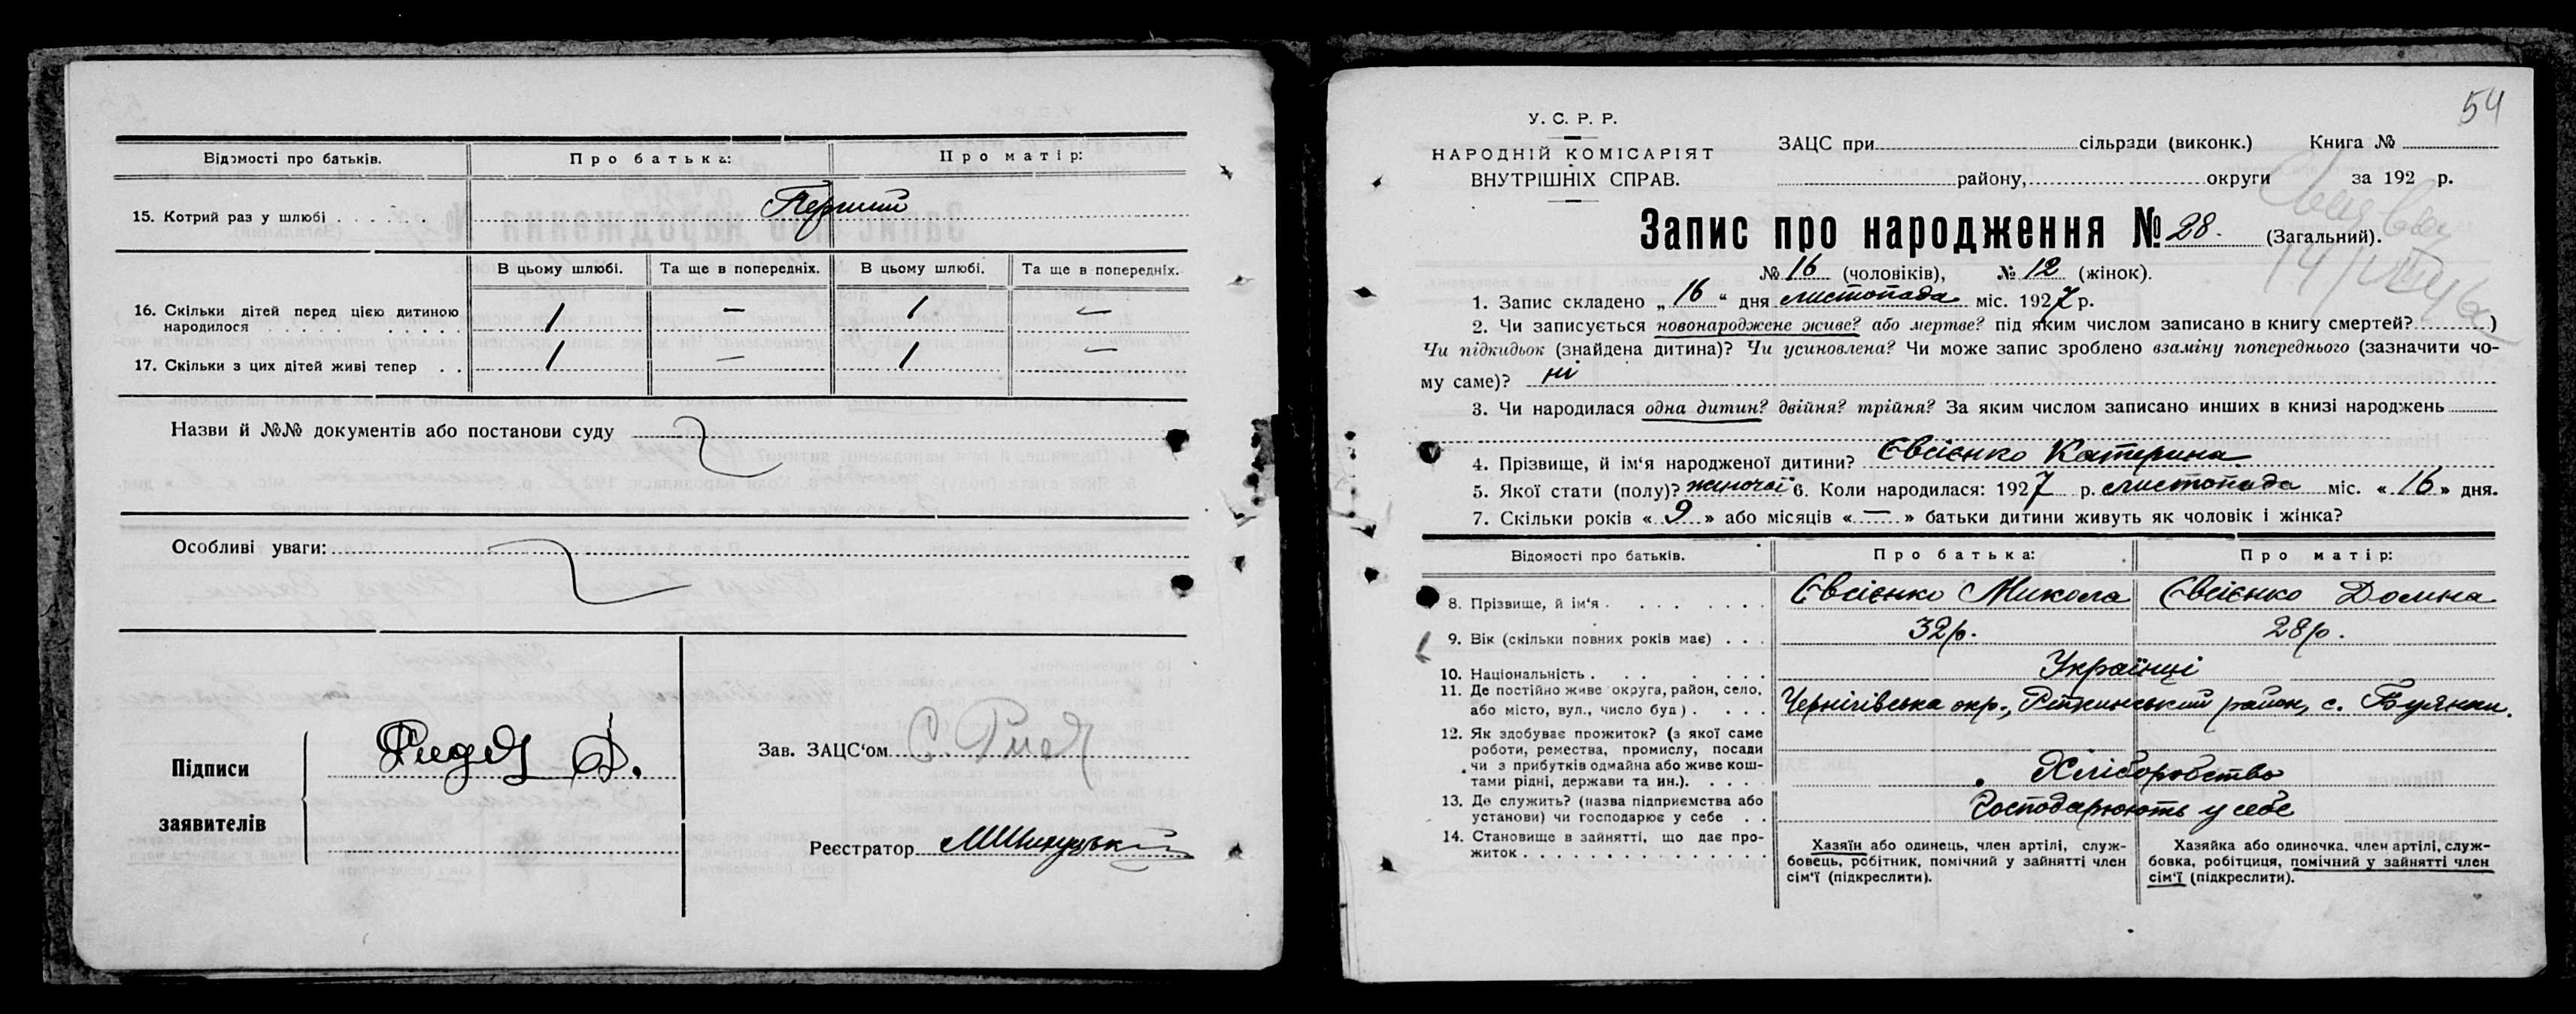 Відомості про батьків. Про батька: Про матір:
15. Котрий раз у шлюбі . . . . . Перший
В цьому шлюбі. Та ще в попередніх. В цьому шлюбі. Та ще в попередніх.
16. Скільки дітей перед цією дитиною
народилося . . . . . . . . 1 — 1 —
17. Скільки з цих дітей живі тепер . . 1 — 1 —
Назви й №№ документів або постанови суду
Особливі уваги:
Підписи
заявителів
Зав. ЗАЦС‘ом
Реєстратор
54
У. С. Р. Р.
НАРОДНІЙ КОМІСАРІЯТ
ВНУТРІШНІХ СПРАВ.
ЗАЦС при сільради (виконк.) Книга №
району, округи за 192 р.
Запис про народження № 28. (Загальний).
№ 16 (чоловіків), № 12 (жінок).
1. Запис складено „ 16 “ дня листопада міс. 1927 р.
2. Чи записується новонароджене живе? або мертве? під яким числом записано в книгу смертей? )
Чи підкидьок (знайдена дитина)? Чи усиновлена? Чи може запис зроблено взаміну попереднього (зазначити чо-
му саме)? ні
3. Чи народилася одна дитин? двійня? трійня? За яким числом записано инших в книзі народжень
4. Прізвище, й ім‘я народженої дитини? Євсієнко Катерина.
5. Якої стати (полу)? жіночої 6. Коли народилася: 1927 р. листопада міс. « 16 » дня.
7. Скільки років « 9 » або місяців « — » батьки дитини живуть як чоловік і жінка?
Відомості про батьків. Про батька: Про матір:
8. Прізвище, й ім‘я . . . . . . . Євсієнко Микола Євсієнко Домна
9. Вік (скільки повних років має) . . . 32 р. 28 р.
10. Національність . . . . . . Українці
11. Де постійно живе округа, район, село,
або місто, вул., число буд) . . . . Чернігівська окр., Ріпкинський район, с. Буянки.
12. Як здобуває прожиток? (з якої саме
роботи, ремества, промислу, посади
чи з прибутків одмайна або живе кош-
тами рідні, держави та ин.). . . . . Хліборобство
13. Де служить? (назва підприємства або
установи) чи господарює у себе . . Господарюють у себе
14. Становище в зайнятті, що дає про-
житок . . . . . . . . . . . .
Хазяїн або одинець, член артілі, служ-
бовець, робітник, помічний у зайнятті член
сім‘ї (підкреслити).
Хазяйка або одиночка, член артілі, служ-
бовка, робітциця, помічний у зайнятті член
сім‘ї (підкреслити).